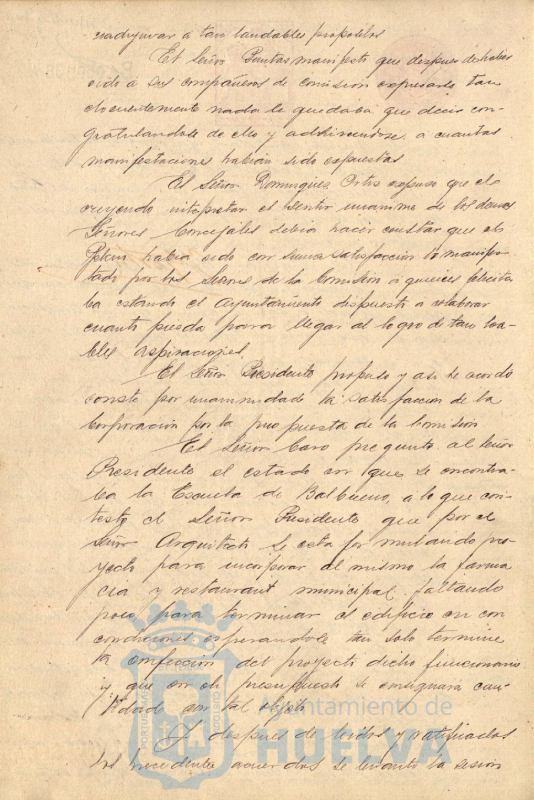 coadyuvar a tan laudables propositos
El Señor Pantas manifestó que despues de haber
oido a sus compañeros de comision expresarse tan
elocuentemente nada le quedaba que decir con-
gratulandose de ello y adhiriendose a cuantas
manifestaciones habian sido expuestas
El Señor Dominguez Ortiz expuso que el
creyendo interpretar el sentir unanime de los demas
Señores Concejales debia hacer constar que el
habia sido con suma satisfaccion lo manifes-
tado por los Señores de la Comision a quienes felicita-
ba estando el Ayuntamiento dispuesto a colaborar
cuanto pueda para llegar al logro de tan loa-
bles aspiraciones
El Señor Presidente propuso y asi se acordó
conste por unanimidad la satisfaccion de la
Corporación por la propuesta de la Comisión
El Señor Caro preguntó al Señor
Presidente el estado en que se encontra-
ba la Escuela de Balbueno, a lo que con-
testó el Señor Presidente que por el
Señor Arquitecto se esta formulando pro-
yecto para incorporar al mismo la farma
cia y restaurant municipal faltando
poco para terminar el edificio en con
condiciones esperandose tan solo termine
la confeccion del proyecto dicho funcionario
y que en el presupuesto se consignara can-
tidad con tal objeto
Y despues de leidos y ratificados
los precedentes acuerdos se levantó la sesión
PORTUS MARIS
Ayuntamiento de
HUELVA